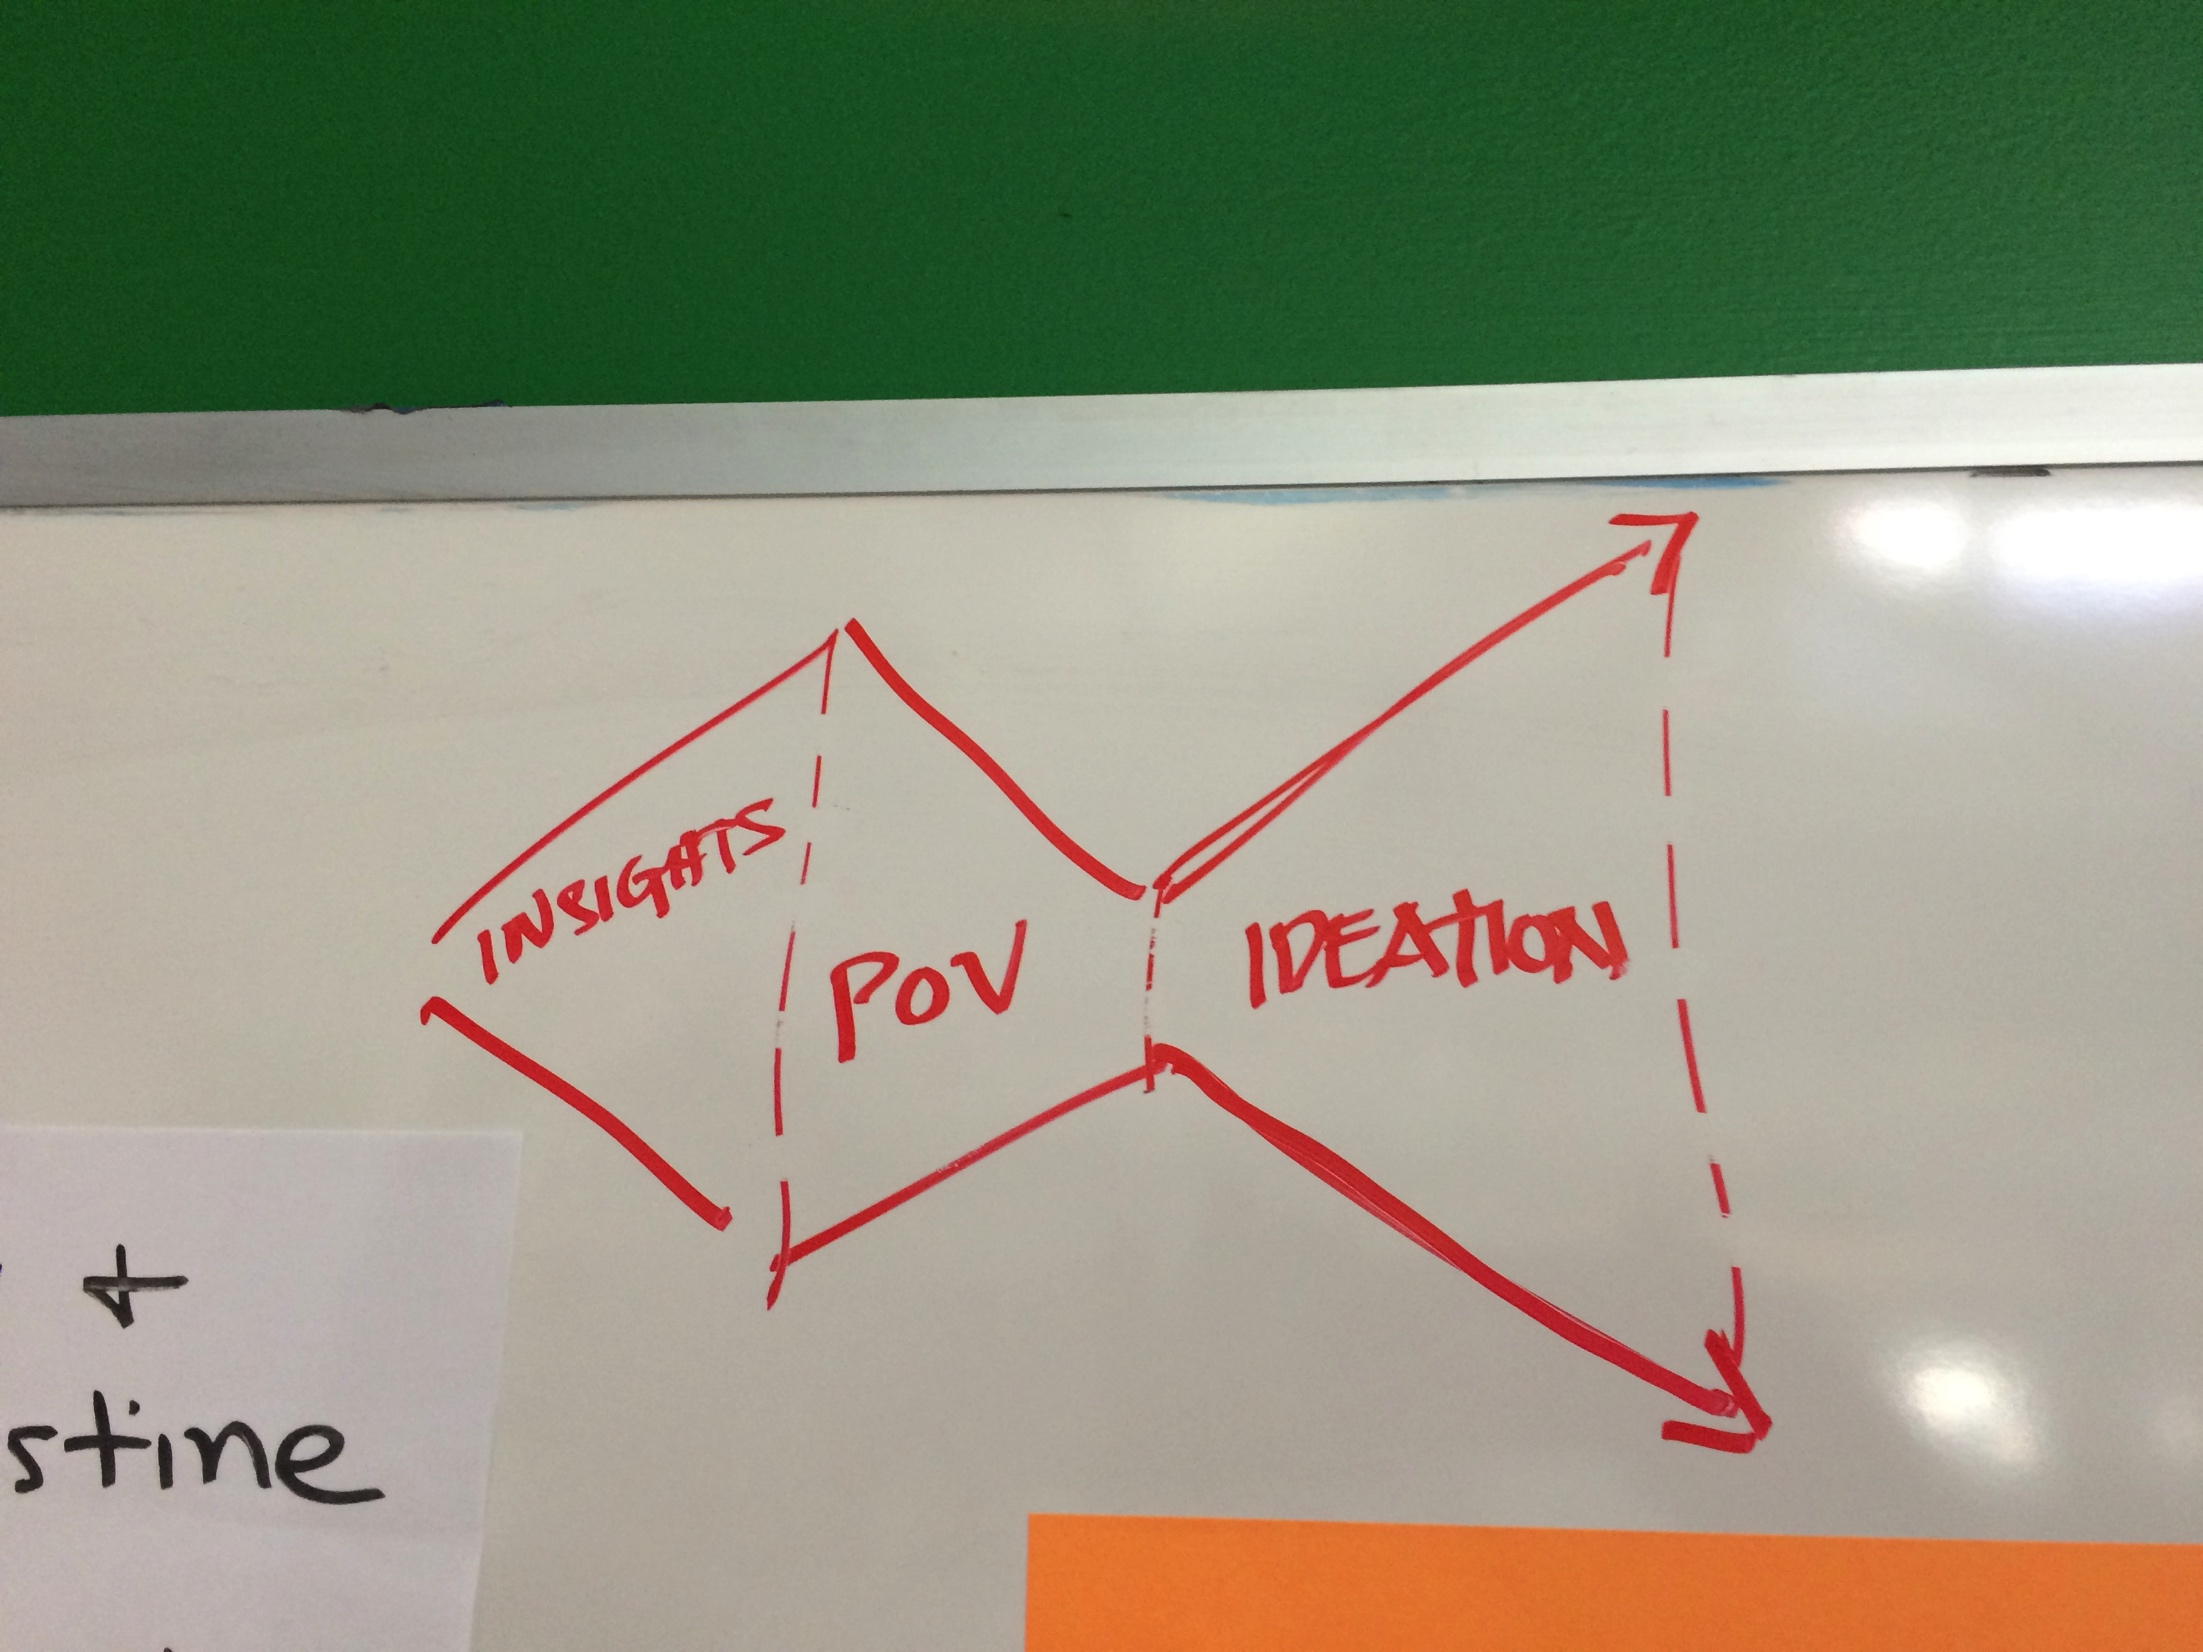 INSIGHTS
POV
IDEATION
+
stine